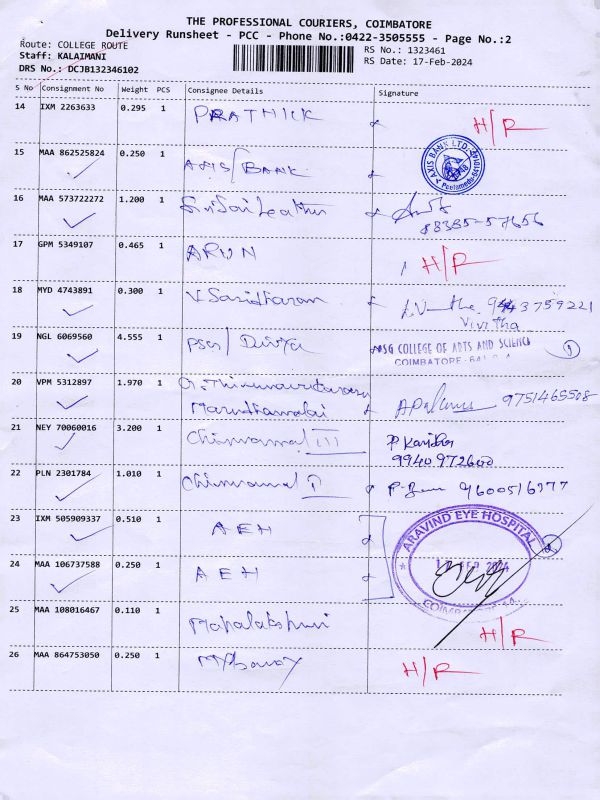 THE PROFESSIONAL COURIERS, COIMBATORE
Delivery Runsheet - PCC - Phone No.:0422-3505555 - Page No.:2
Route: COLLEGE ROUTE
Staff: KALAIMANI
DRS No.: DCJB132346102
RS No.: 1323461
RS Date: 17-Feb-2024
S No Consignment No Weight PCS Consignee Details Signature
14 IXM 2263633 0.295 1 PRATHICK H/R
15 MAA 862525824 0.250 1 AXIS/BANK AXIS BANK LTD.
16 MAA 573722272 1.200 1 Sri Sai Leather 88385-57656
17 GPM 5349107 0.465 1 ARUN H/R
18 MYD 4743891 0.300 1 V Saridharan 9443759221
Vivitha
19 NGL 6069560 4.555 1 PSG/ Divya PSG COLLEGE OF ARTS AND SCIENCE
COIMBATORE
20 VPM 5312897 1.970 1 9751465508
Maruthamalai
21 NEY 70060016 3.200 1 Chinnamal III
9940972600
22 PLN 2301784 1.010 1 Chinnamal I 9600516977
23 IXM 505909337 0.510 1 AEH ARAVIND EYE HOSPITAL
24 MAA 106737588 0.250 1 AEH
COIMBATORE
25 MAA 108016467 0.110 1 Mahalakshmi H/R
26 MAA 864753050 0.250 1 H/R